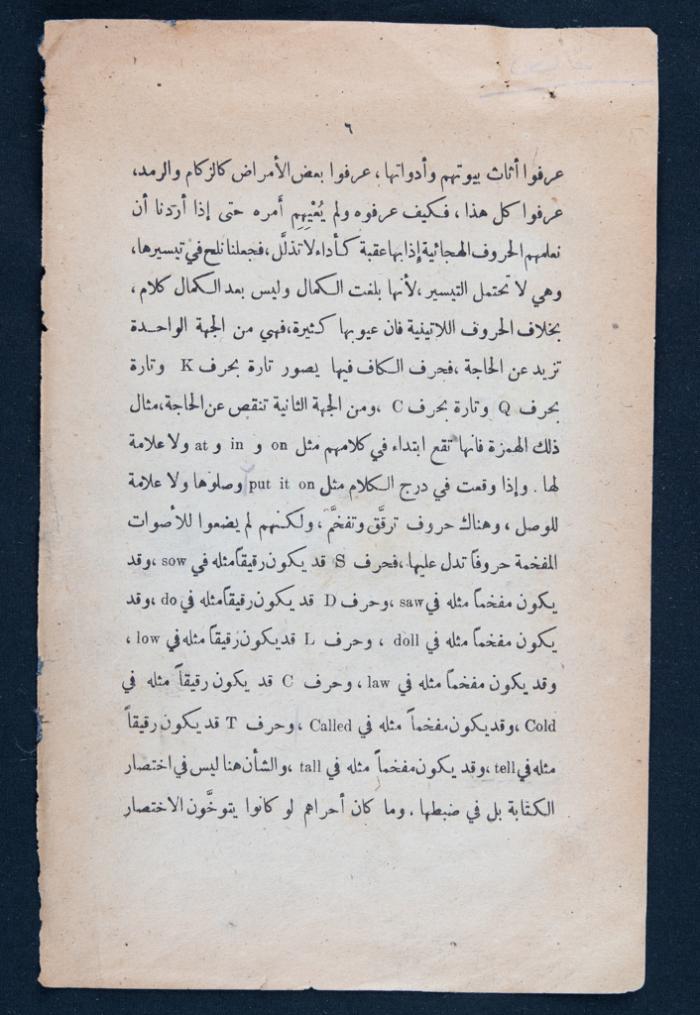 ٦
عرفوا أثاث بيوتهم وأدواتها، عرفوا بعض الأمراض كالزكام والرمد،
عرفوا كل هذا، فكيف عرفوه ولم يُعْيِهِم أمره حتى إذا أردنا أن
نعلمهم الحروف الهجائية إذا بها عقبة كأداء لا تذلَّل، فجعلنا نلح في تيسيرها،
وهي لا تحتمل التيسير، لأنها بلغت الكمال وليس بعد الكمال كلام،
بخلاف الحروف اللاتينية فان عيوبها كثيرة، فهي من الجهة الواحدة
تزيد عن الحاجة، فحرف الكاف فيها يصور تارة بحرف K وتارة
بحرف Q وتارة بحرف C، ومن الجهة الثانية تنقص عن الحاجة، مثال
ذلك الهمزة فانها تقع ابتداء في كلامهم مثل on و in و at ولا علامة
لها. وإذا وقعت في درج الكلام مثل put it on وصلوها ولا علامة
للوصل، وهناك حروف ترقَّق وتفخَّم، ولكنهم لم يضعوا للأصوات
المفخمة حروفاً تدل عليها، فحرف S قد يكون رقيقاً مثله في sow، وقد
يكون مفخماً مثله في saw، وحرف D قد يكون رقيقاً مثله في do، وقد
يكون مفخماً مثله في doll، وحرف L قد يكون رقيقاً مثله في low،
وقد يكون مفخماً مثله في law، وحرف C قد يكون رقيقاً مثله في
Cold، وقد يكون مفخماً مثله في Called، وحرف T قد يكون رقيقاً
مثله في tell، وقد يكون مفخماً مثله في tall، والشأن هنا ليس في اختصار
الكتابة بل في ضبطها. وما كان أحراهم لو كانوا يتوخَّون الاختصار